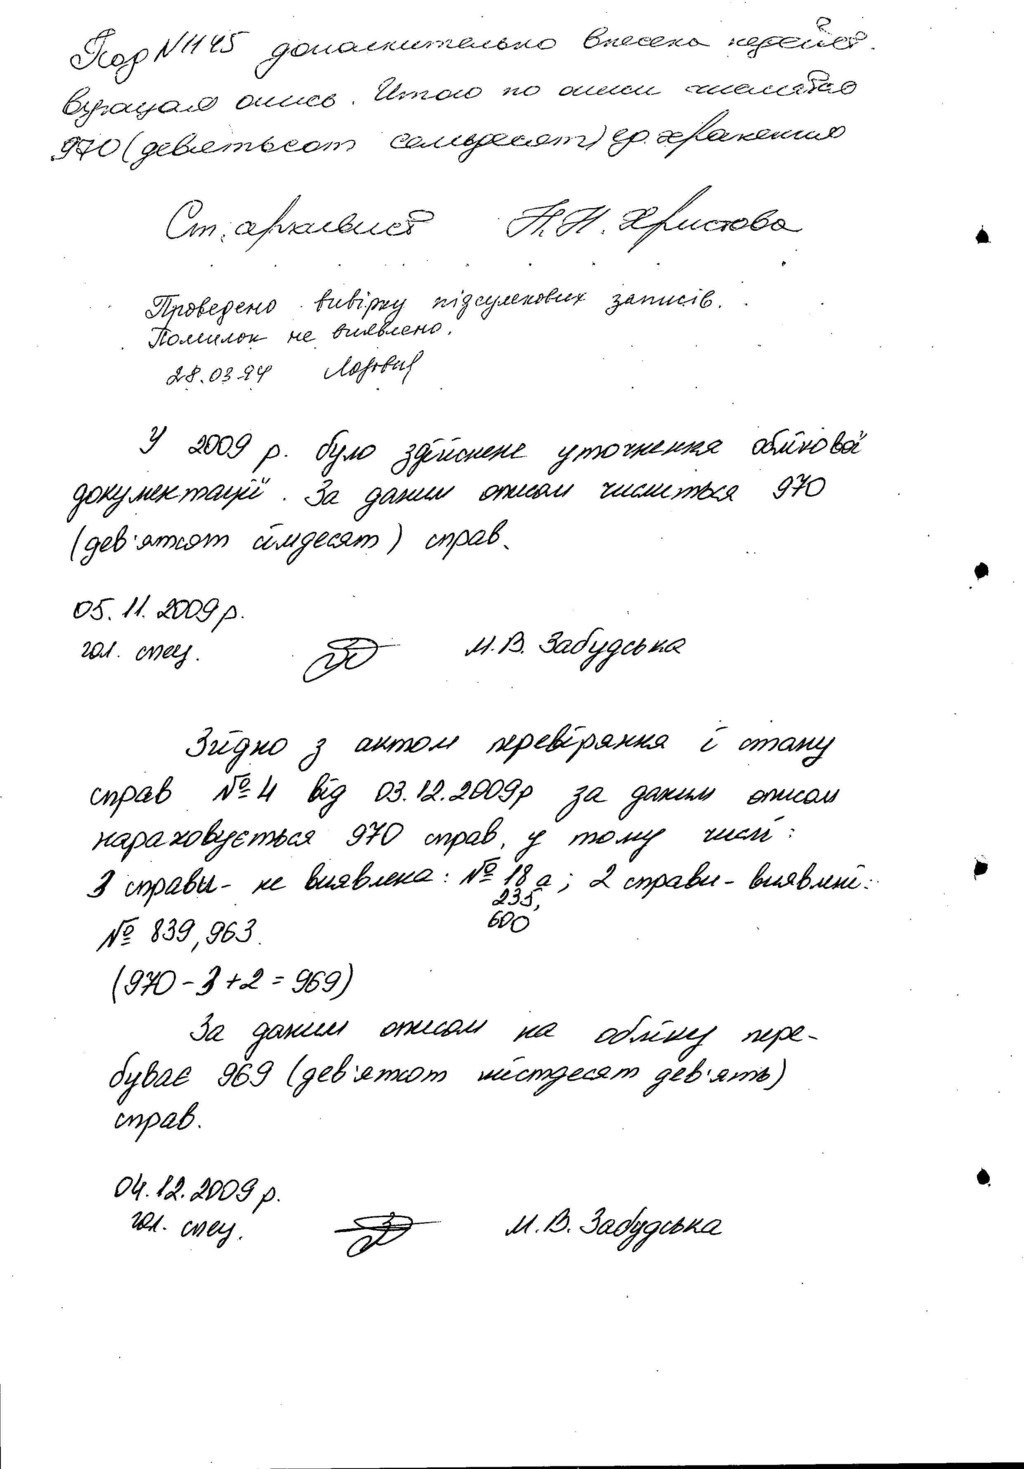 Под №1145 дополнительно внесена
опись. Итого по описи числятся
970 (девятьсот семьдесят) ед. хранения
Ст. архивист Н.Н. Христова
Проведено вивірку підсумкових записів.
Помилок не виявлено.
28.03.94
У 2009 р. було здійснене уточнення облікової
документації. За даним описом числиться 970
(дев'ятсот сімдесят) справ.
05.11.2009р.
гол. спец. М.В. Забудська
Згідно з актом перевіряння і стану
справ №4 від 03.12.2009р за даним описом
нараховується 970 справ, у тому числі:
3 справы - не виявлена: № 18а; 2 справи - виявлені:
235,
600
№ 839, 963.
(970 - 3 + 2 = 969)
За даним описом на обліку пере-
буває 969 (дев'ятсот шістдесят дев'ять)
справ.
04.12.2009 р.
гол. спец. М.В. Забудська